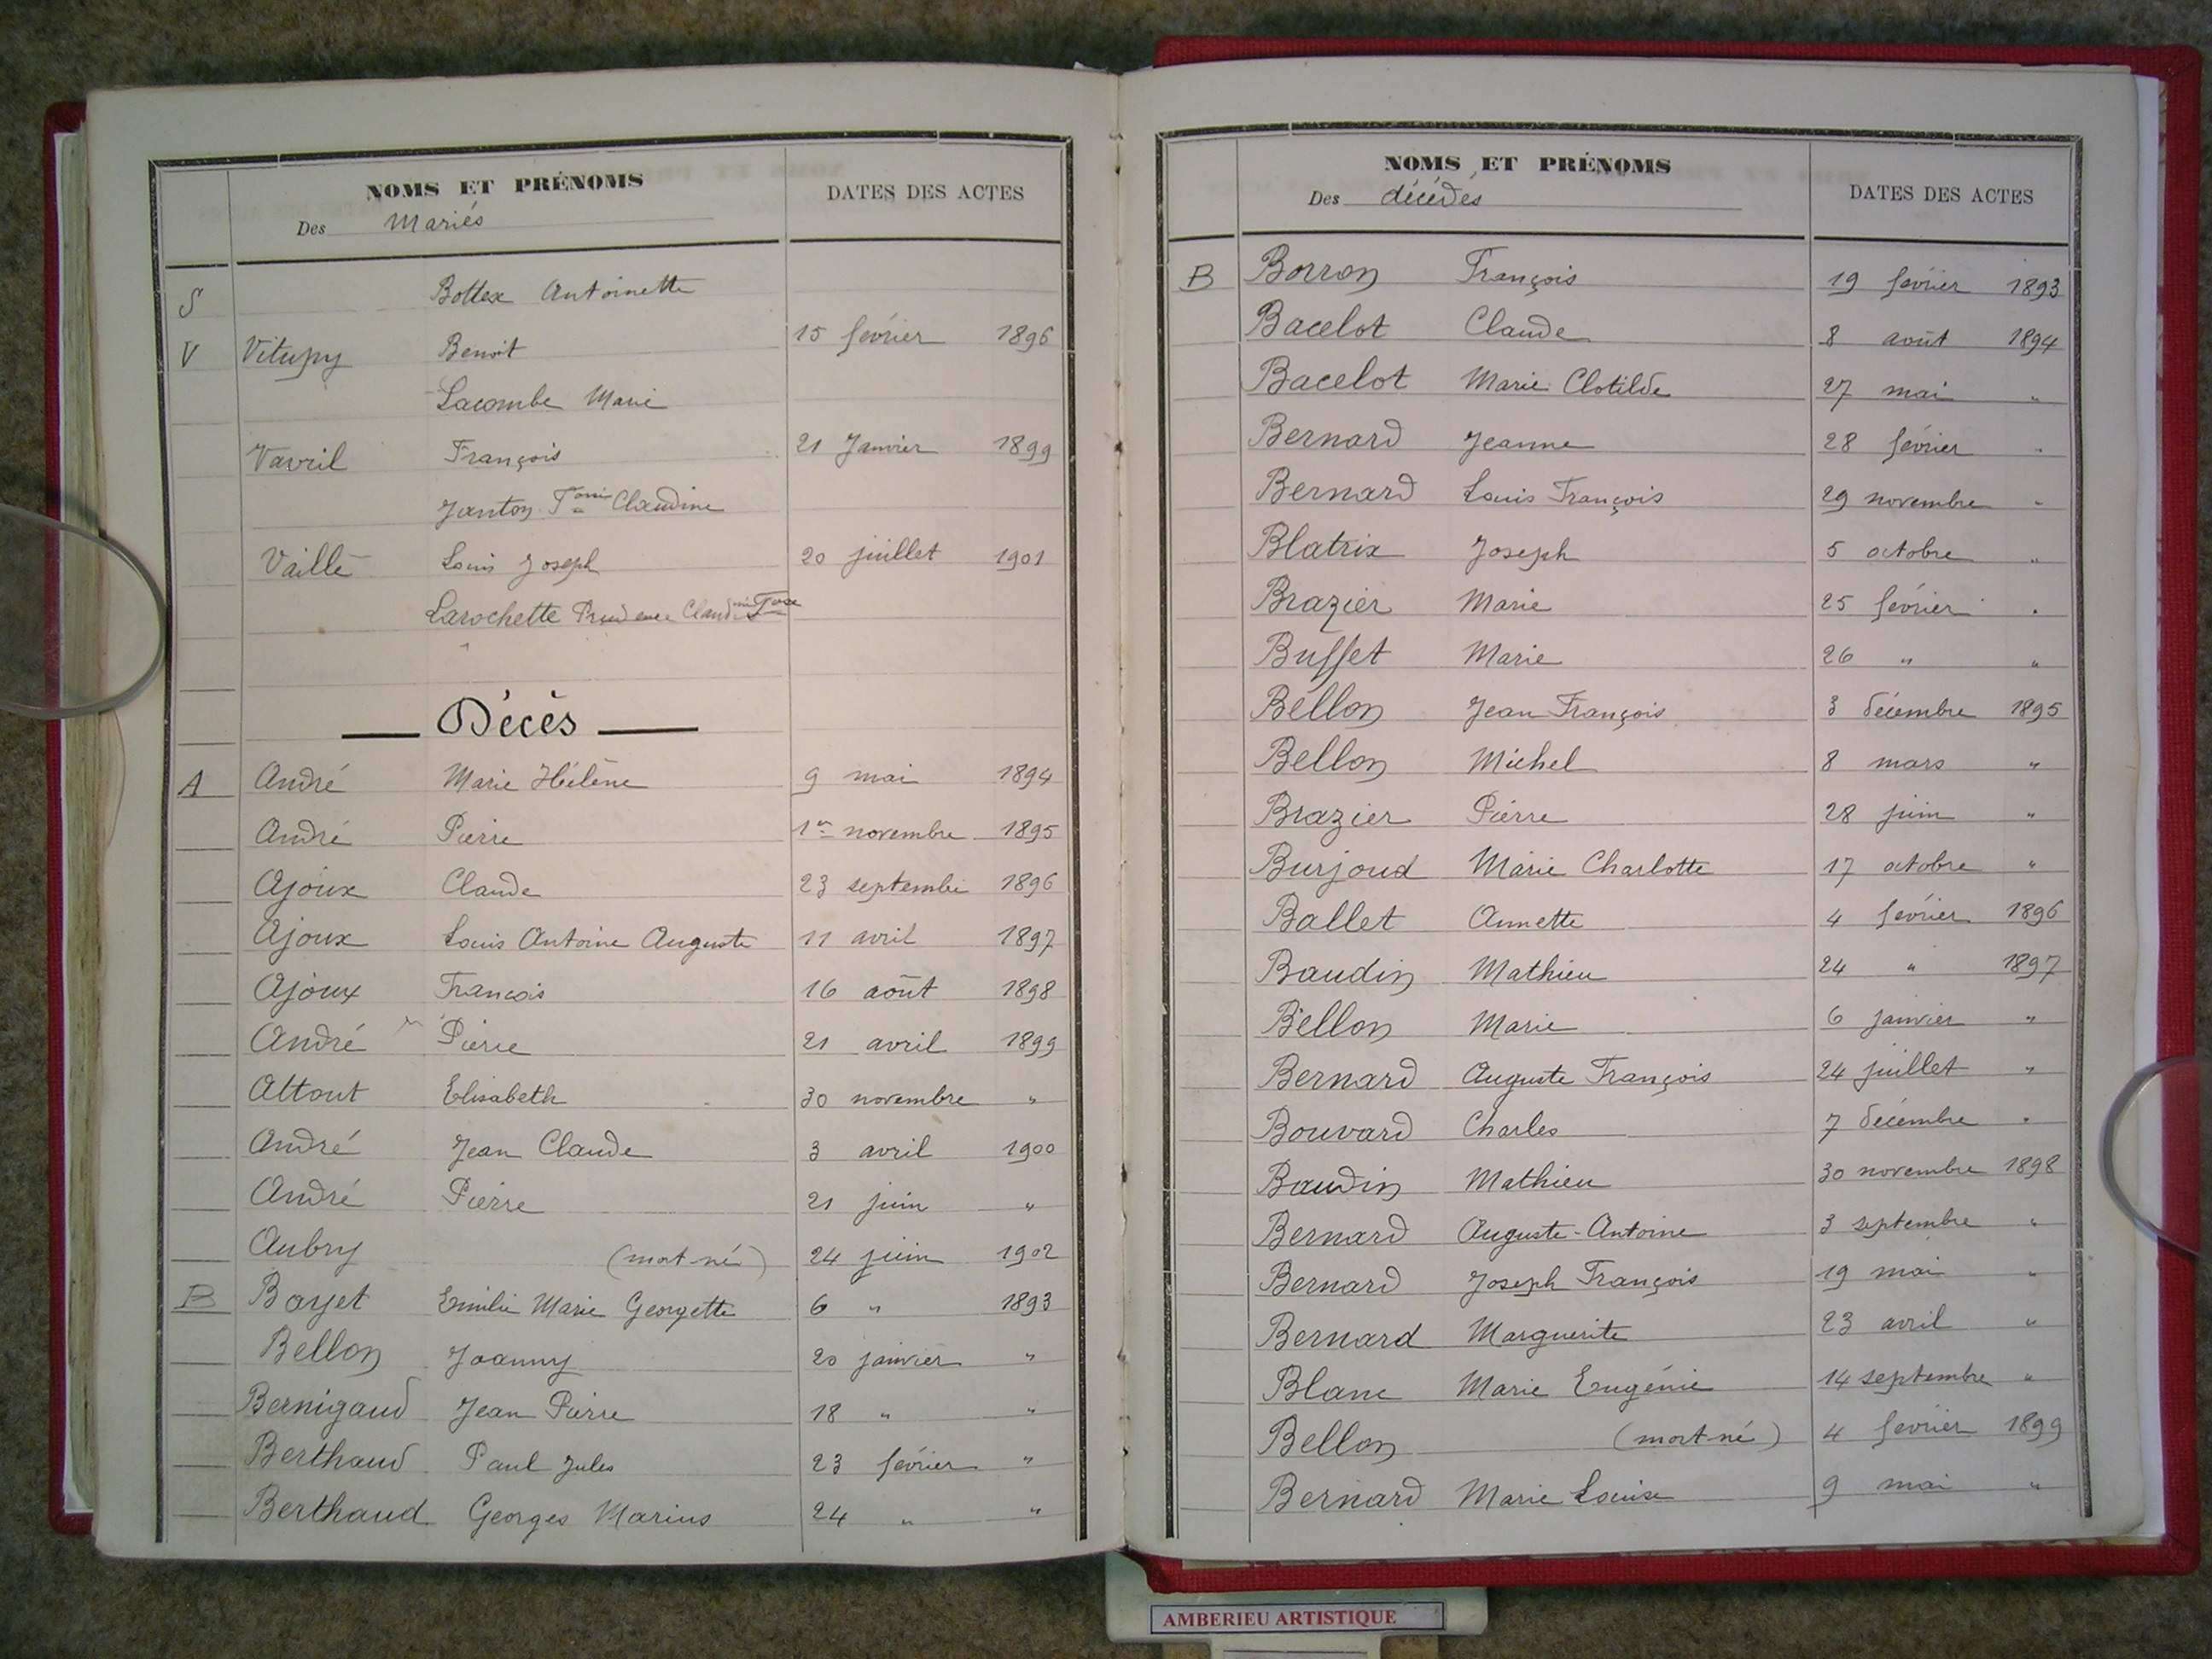 NOMS ET PRÉNOMS
Des Mariés
DATES DES ACTES
S Bottex Antoinette
V Vitupy Benoit 15 février 1896
Lacombe Marie
Vavril François 21 Janvier 1899
Janton Claudine
Vaillé Louis Joseph 20 juillet 1901
Larochette Prudence
Décès
A André Marie Hélène 9 mai 1894
André Pierre 1er novembre 1895
Ajoux Claude 23 septembre 1896
Ajoux Louis Antoine Auguste 11 avril 1897
Ajoux François 16 août 1898
André Pierre 21 avril 1899
Attout Elisabeth 30 novembre "
André Jean Claude 3 avril 1900
André Pierre 21 juin "
Aubry (mort-né) 24 juin 1902
B Bayet Emilie Marie Georgette 6 " 1893
Bellon Joanny 20 janvier "
Bernigaud Jean Pierre 18 " "
Berthaud Paul Jules 23 février "
Berthaud Georges Marius 24 " "
NOMS ET PRÉNOMS
Des décédés
DATES DES ACTES
B Borron François 19 février 1893
Bacelot Claude 8 août 1894
Bacelot Marie Clotilde 27 mai "
Bernard Jeanne 28 février "
Bernard Louis François 29 novembre "
Blatrix Joseph 5 octobre "
Brazier Marie 25 février "
Buffet Marie 26 " "
Bellon Jean François 3 décembre 1895
Bellon Michel 8 mars "
Brazier Pierre 28 juin "
Burjoud Marie Charlotte 17 octobre "
Ballet Annette 4 février 1896
Baudin Mathieu 24 " 1897
Bellon Marie 6 janvier "
Bernard Auguste François 24 juillet "
Bouvard Charles 7 décembre "
Baudin Mathieu 30 novembre 1898
Bernard Auguste-Antoine 3 septembre "
Bernard Joseph François 19 mai "
Bernard Marguerite 23 avril "
Blanc Marie Eugénie 14 septembre "
Bellon (mort-né) 4 février 1899
Bernard Marie Louise 9 mai "
AMBERIEU ARTISTIQUE